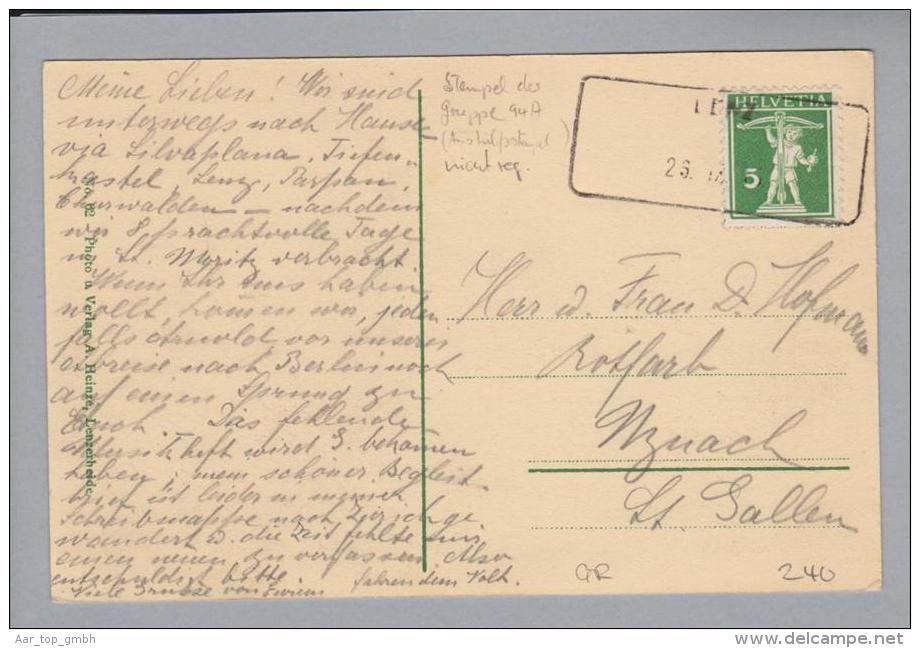 Meine Lieben! Wir sind
unterwegs nach Hause
via Silvaplana, Tiefen-
kastel, Lenz, Parpan,
Churwalden – nachdem
wir 8 prachtvolle Tage
in St. Moritz verbracht.
Wenn Ihr uns haben
wollt, kommen wir, jeden
falls Arnold vor unserer
Abreise nach Berlin noch
auf einen Sprung zu
Euch. Das fehlende
Musikheft wird S. bekommen
haben; mein schöner Begleit
brief ist leider in meiner
Schreibmappe nach Zürich ge
wandert u. die Zeit fehlte mir
einen neuen zu verfassen. Also
entschuldigt bitte.
Viele Grüsse von
No. 62 Photo u. Verlag A. Heinze, Lenzerheide.
Stempel der
Gruppe 94A
(Aushilfsstempel)
nicht reg.
LENZ
26.
HELVETIA
5
Herr u. Frau D. Hofmann
Rotfarb
Uznach
St. Gallen
GR
240
Aar_top_gmbh
www.delcampe.net